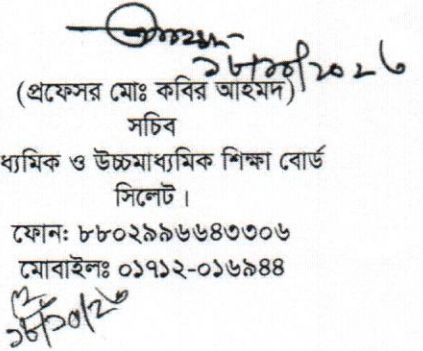 ১৮/১০/২০২৬
(প্রফেসর মোঃ কবির আহমদ)
সচিব
ধ্যমিক ও উচ্চমাধ্যমিক শিক্ষা বোর্ড
সিলেট।
ফোনঃ ৮৮০২৯৯৬৬৪৩৩০৬
মোবাইলঃ ০১৭১২-০১৬৯৪৪